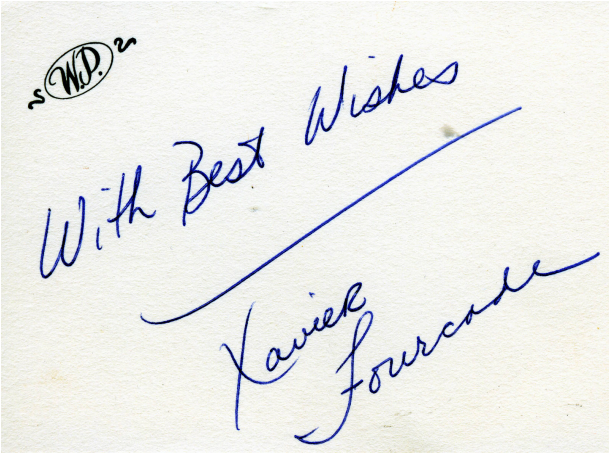 W.P.
With Best Wishes
Xavier
Fourcade